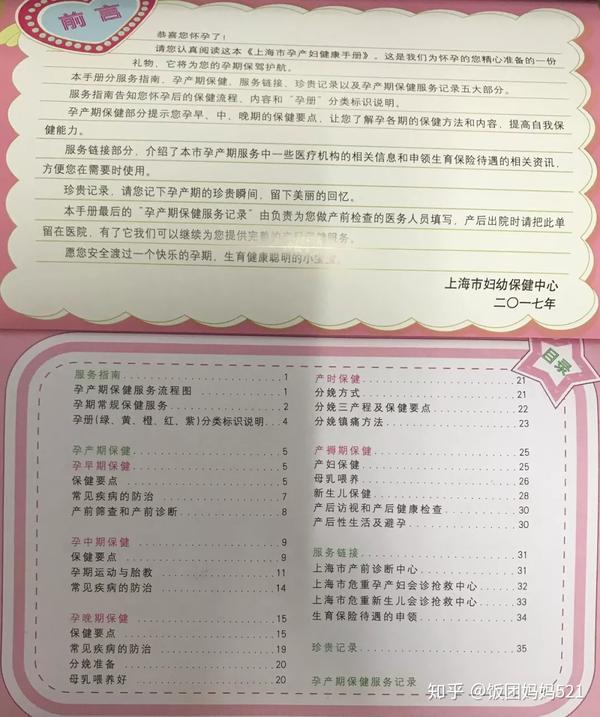 前言
恭喜您怀孕了!
请您认真阅读这本《上海市孕产妇健康手册》。这是我们为怀孕的您精心准备的一份
礼物,它将为您的孕期保驾护航。
本手册分服务指南、孕产期保健、服务链接、珍贵记录以及孕产期保健服务记录五大部分。
服务指南告知您怀孕后的保健流程、内容和“孕册”分类标识说明。
孕产期保健部分提示您孕早、中、晚期的保健要点,让您了解孕各期的保健方法和内容,提高自我保
健能力。
服务链接部分,介绍了本市孕产期服务中一些医疗机构的相关信息和申领生育保险待遇的相关资讯,
方便您在需要时使用。
珍贵记录,请您记下孕产期的珍贵瞬间,留下美丽的回忆。
本手册最后的“孕产期保健服务记录”由负责为您做产前检查的医务人员填写,产后出院时请把此单
留在医院,有了它我们可以继续为您提供完整的产后保健服务。
愿您安全渡过一个快乐的孕期,生育健康聪明的小宝宝。
上海市妇幼保健中心
二〇一七年
目录
服务指南 1
孕产期保健服务流程图 1
孕期常规保健服务 2
孕册(绿、黄、橙、红、紫)分类标识说明 4
孕产期保健 5
孕早期保健 5
保健要点 5
常见疾病的防治 7
产前筛查和产前诊断 8
孕中期保健 9
保健要点 9
孕期运动与胎教 11
常见疾病的防治 14
孕晚期保健 15
保健要点 15
常见疾病的防治 19
分娩准备 20
母乳喂养好 20
产时保健 21
分娩方式 21
分娩三产程及保健要点 22
分娩镇痛方法 23
产褥期保健 25
产妇保健 25
母乳喂养 26
新生儿保健 28
产后访视和产后健康检查 30
产后性生活及避孕 30
服务链接 31
上海市产前诊断中心 31
上海市危重孕产妇会诊抢救中心 32
上海市危重新生儿会诊抢救中心 33
生育保险待遇的申领 34
珍贵记录 35
孕产期保健服务记录
知乎 @饭团妈妈521